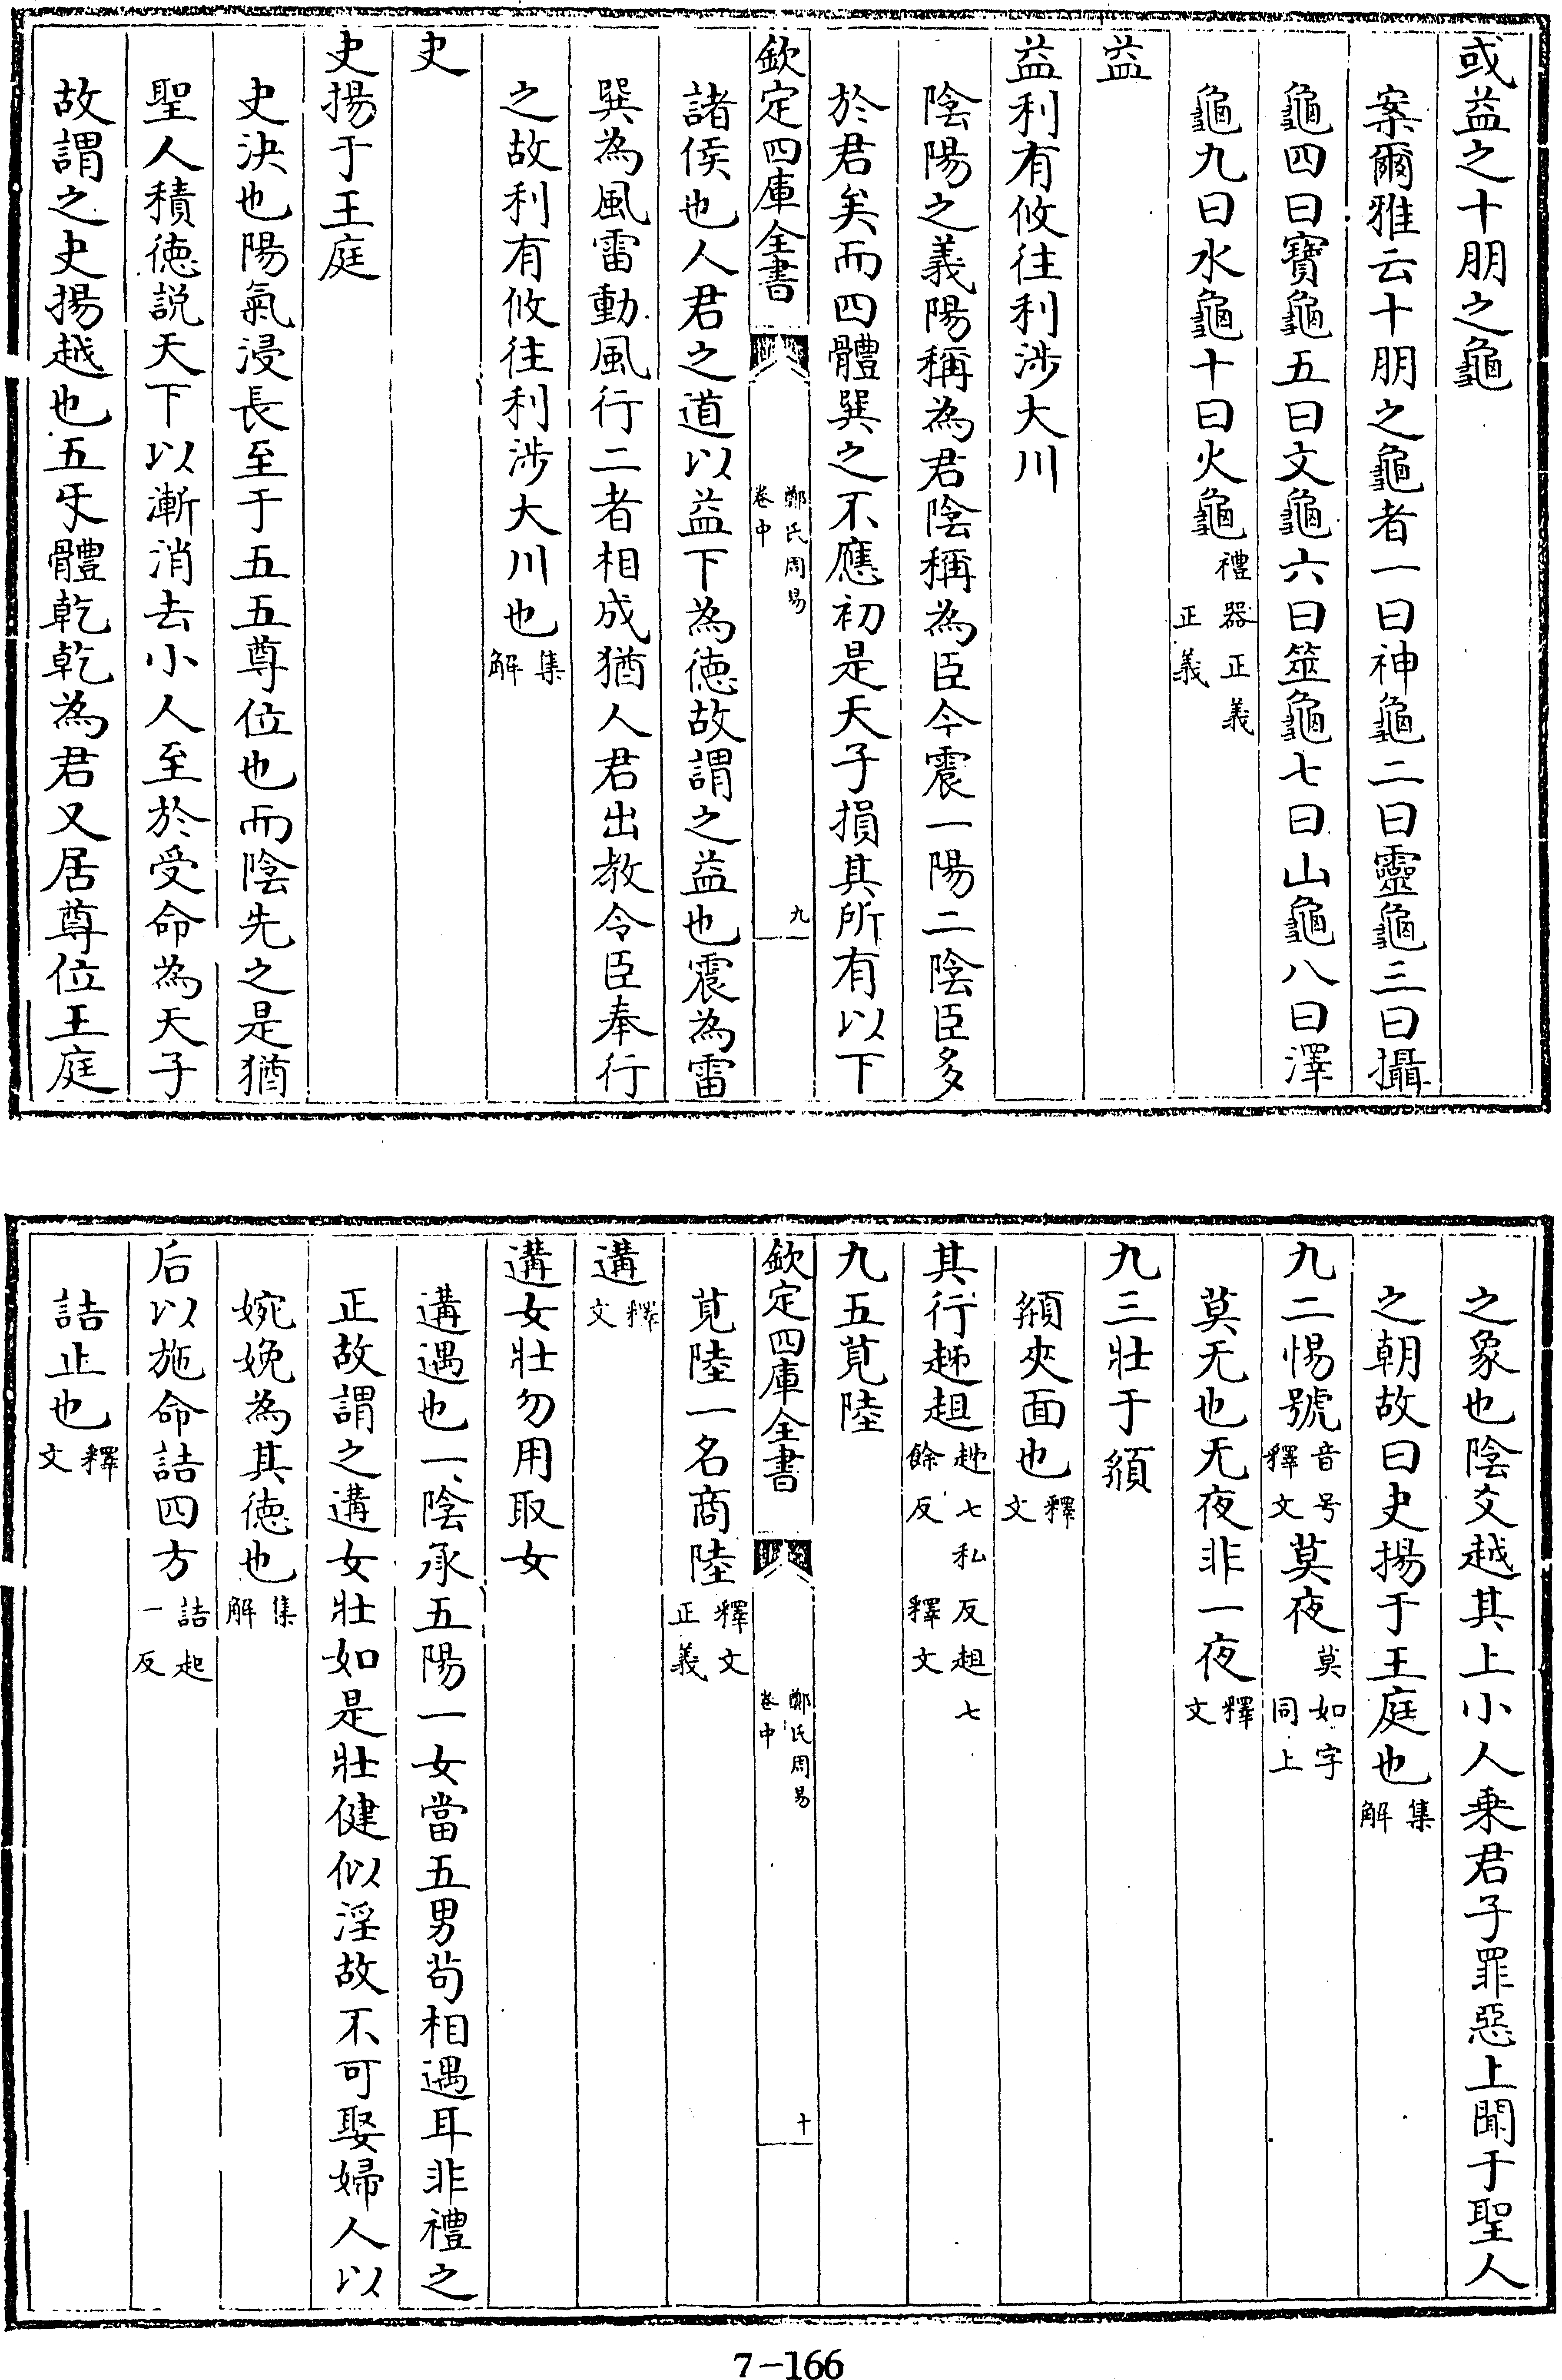 或益之十朋之龜
案爾雅云十朋之龜者一曰神龜二曰靈龜三曰攝
龜四曰寶龜五曰文龜六曰筮龜七曰山龜八曰澤
龜九曰水龜十曰火龜禮器正義正義
益
益利有攸往利涉大川
陰陽之義陽稱為君陰稱為臣今震一陽二陰臣多
於君矣而四體巽之不應初是天子損其所有以下
欽定四庫全書 鄭氏周易卷中 九
諸侯也人君之道以益下為徳故謂之益也震為雷
巽為風雷動風行二者相成猶人君出教令臣奉行
之故利有攸往利涉大川也集解
夬
夬揚于王庭
夬決也陽氣浸長至于五五尊位也而陰先之是猶
聖人積徳説天下以漸消去小人至於受命為天子
故謂之夬揚越也五㸦體乾乾為君又居尊位王庭
之象也陰爻越其上小人乗君子罪惡上聞于聖人
之朝故曰夬揚于王庭也集解
九二惕號音号釋文莫夜莫如字同上
莫无也无夜非一夜釋文
九三壯于頯
頯夾面也釋文
其行趀趄趀七私反趄七餘反釋文
九五莧陸
欽定四庫全書 鄭氏周易卷中 十
莧陸一名商陸釋文正義
遘釋文
遘女壯勿用取女
遘遇也一陰承五陽一女當五男茍相遇耳非禮之
正故謂之遘女壯如是壯健似淫故不可娶婦人以
婉娩為其徳也集解
后以施命詰四方詰起一反
詰止也釋文
7-166